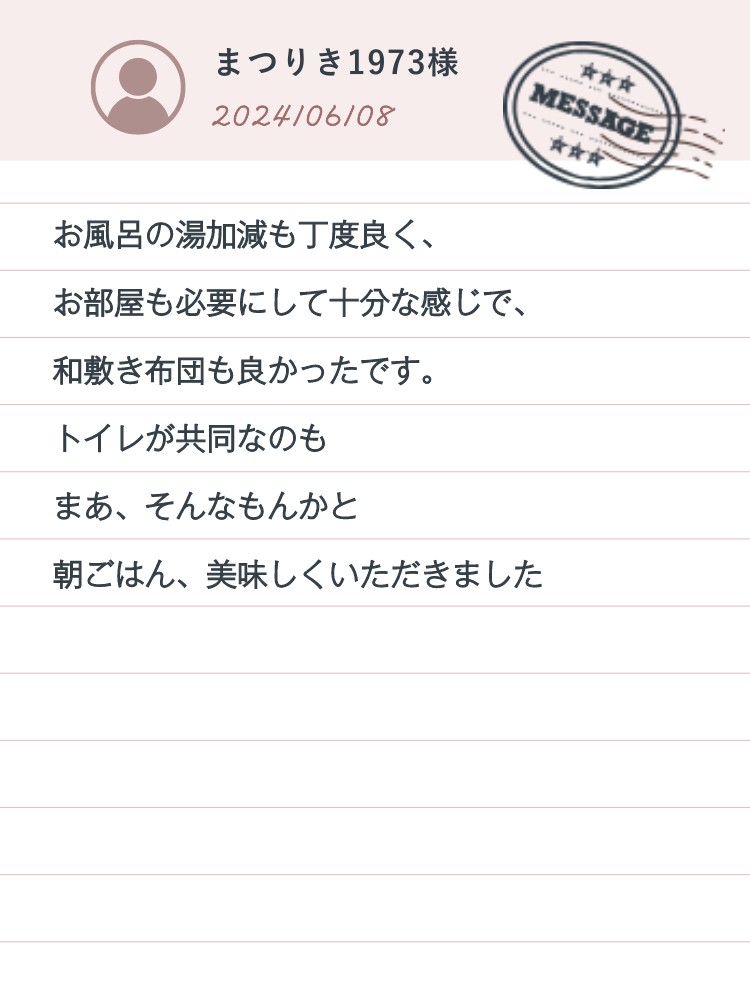 まつりき1973様
2024/06/08
★★★
MESSAGE
★★★
お風呂の湯加減も丁度良く、
お部屋も必要にして十分な感じで、
和敷き布団も良かったです。
トイレが共同なのも
まあ、そんなもんかと
朝ごはん、美味しくいただきました